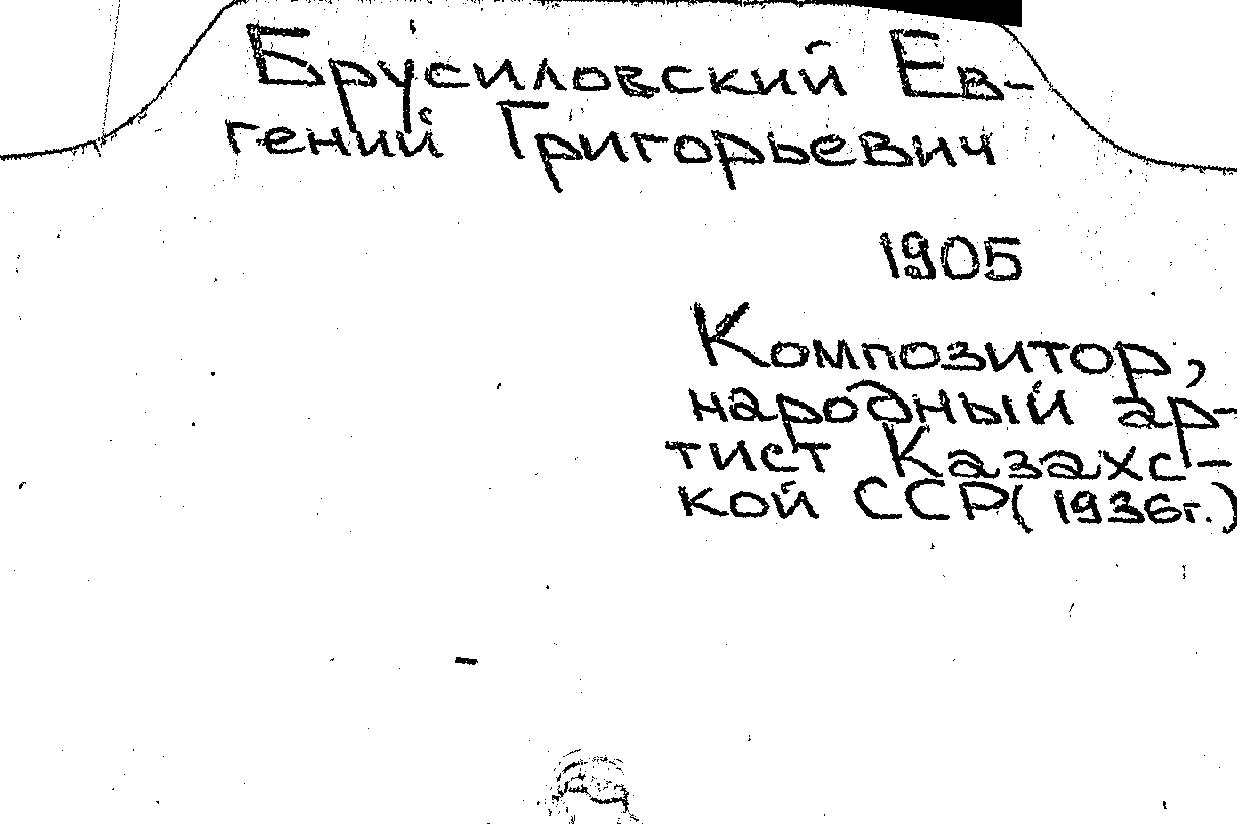 Брусиловский Ев-
гений Григорьевич
1905
Композитор,
народный ар-
тист Казахс-
кой ССР(1936г.)